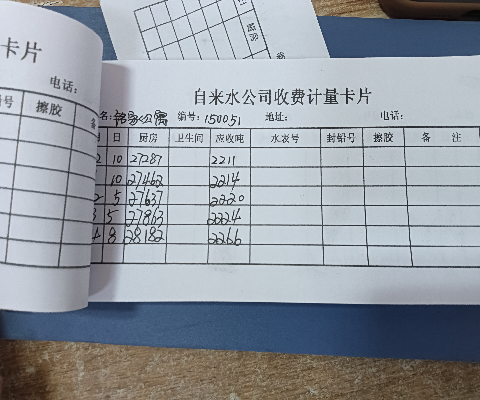 卡片
电话:
铅号 擦胶 备
自来水公司收费计量卡片
名: 公寓 编号: 150051 地址: 电话:
月 日 厨房 卫生间 应收吨 水表号 封铅号 擦胶 备 注
2 10 27287 2211
10 27462 2214
2 5 27637 2220
3 5 27863 2224
4 8 28182 2266